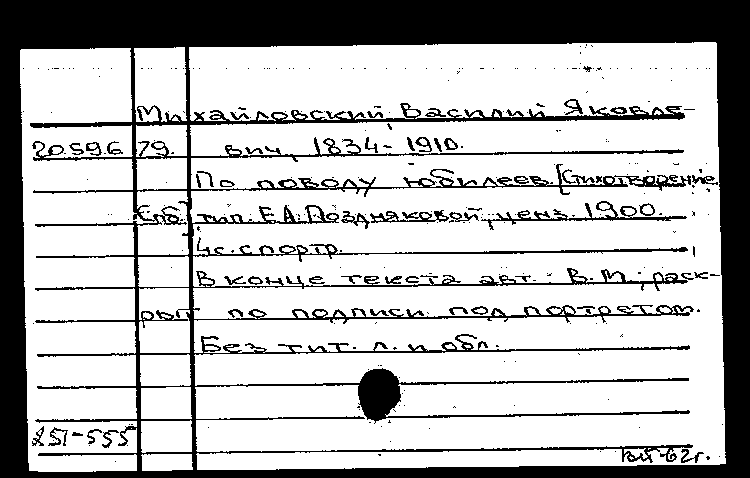 Михайловский, Василий Яковле-
20.59.6.79. вич, 1834-1910.
По поводу юбилеев. [Стихотворение.
Спб.] тип. Е.А. Поздняковой, ценз. 1900.
4с. с портр.
В конце текста авт.: В.М.; раск-
рыт по подписи под портретом.
Без тит. л. и обл.
251-555
62г.